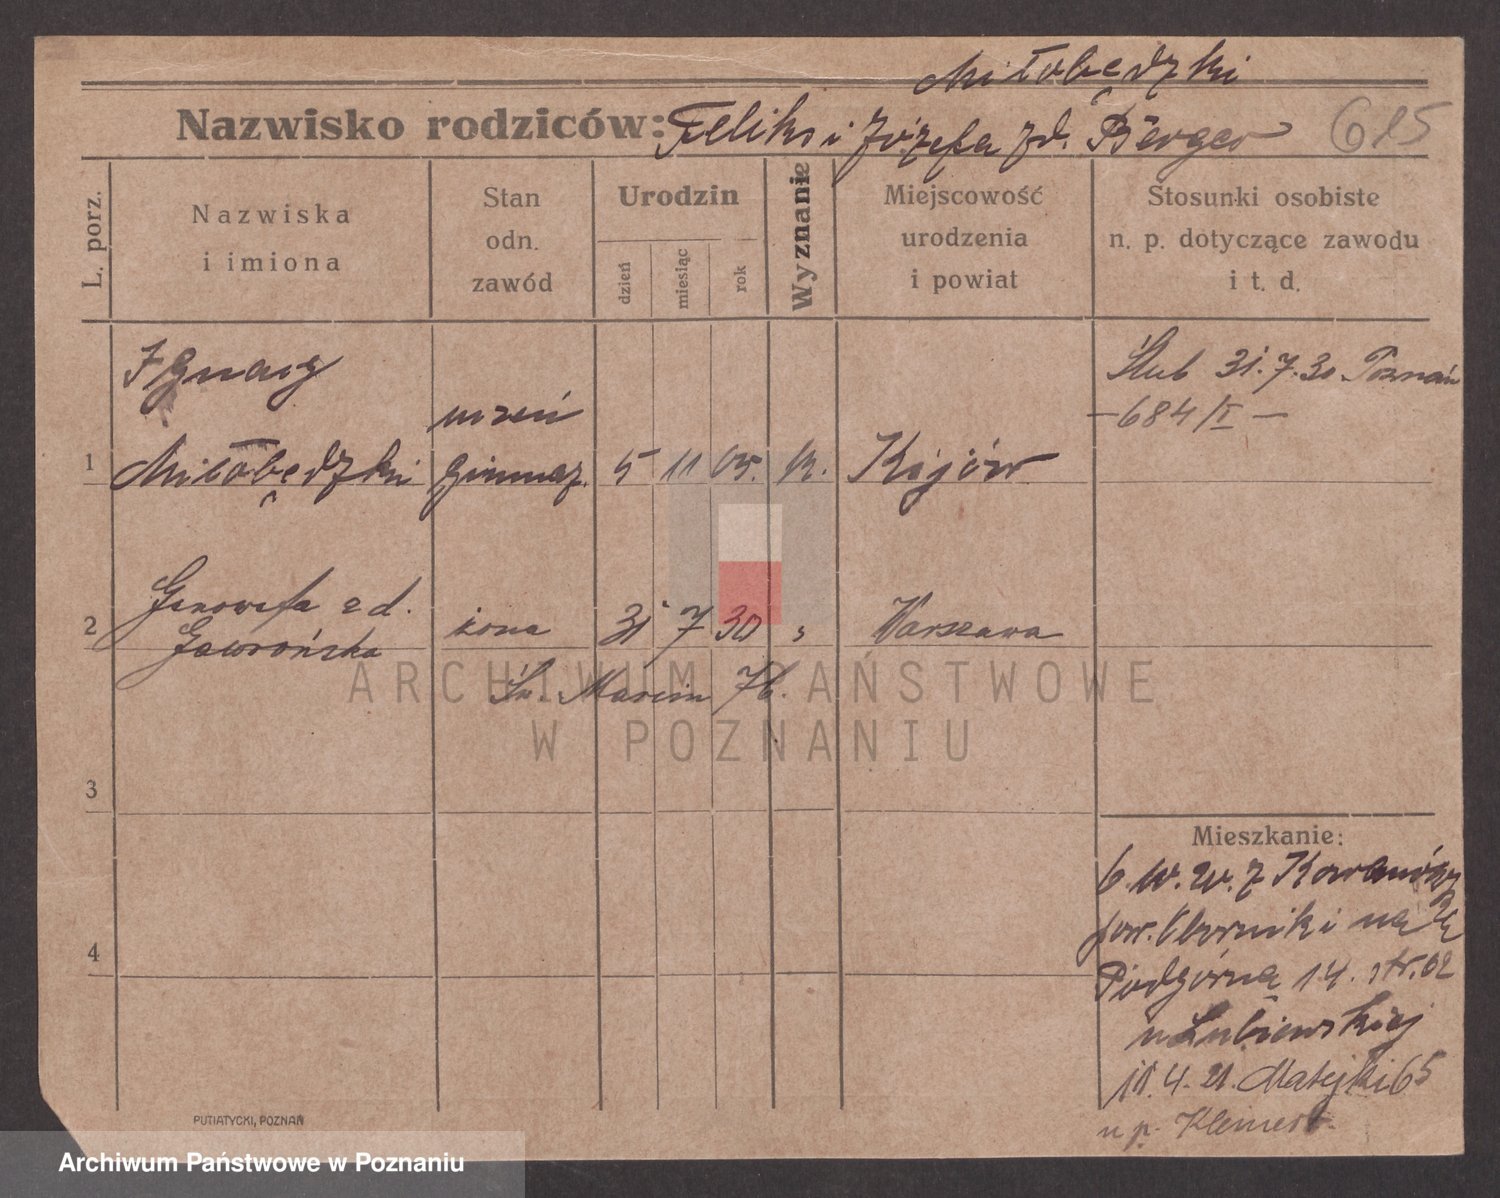 Miłobędzki
Nazwisko rodziców: Feliks i Józefa zd. Berger 615
L. porz.
Nazwiska
i imiona
Stan
odn.
zawód
Urodzin
dzień
miesiąc
rok
Wyznanie
Miejscowość
urodzenia
i powiat
Stosunki osobiste
n. p. dotyczące zawodu
i t. d.
Ignacy
Ślub 31.7.30 Poznań
uczeń
– 684/I –
1 Miłobędzki gimnaz. 5 11 05. k. Kijów
Genowefa zd.
2 Gawrońska żona 31 7 30 " Warszawa
Św. Marcin 76.
ARCHIWUM PAŃSTWOWE
W POZNANIU
3
Mieszkanie:
6.10.20. z Kowanówka
pow. Oborniki na
4
Podgórna 14. str. 02
u Lubiewskiej
11.4.21. Matejki 65
u p. Klemens
PUTIATYCKI, POZNAŃ
Archiwum Państwowe w Poznaniu